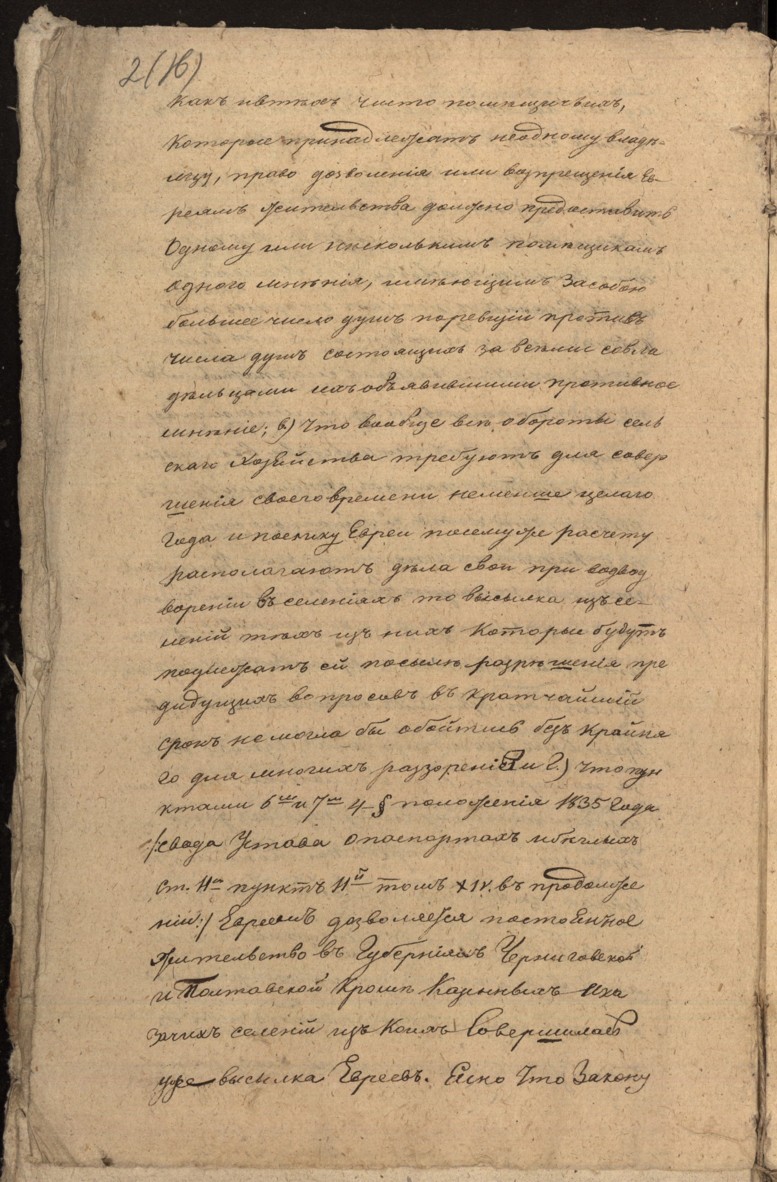 2(16)
какъ и въ тѣхъ чисто помѣщичьихъ,
которые принадлежатъ неодному владѣ-
льцу, право дозволенія или возпрещенія Ев-
реямъ жительства должно предоставить
одному или нѣсколькимъ помѣщикамъ
одного мнѣнія, имѣющимъ за собою
большее число душъ по ревизіи противъ
числа душъ состоящихъ за всѣми совла
дѣльцами ихъ объявившими противное
мнѣніе; в) Что вообще всѣ обороты сель
скаго хозяйства требуютъ для совер
шенія своего времени неменше целаго
года и поелику Евреи посему же расчету
располагаютъ дѣла свои при водво
вореніи въ селеніяхъ то высылка изъ се-
леній тѣхъ изъ нихъ которые будутъ
подлежать ей по силѣ разрѣшенія пре
дидущихъ вопросовъ въ кратчайшій
срокъ не могла бы обойтись безъ крайня
го для многихъ раззоренія и г.) что пун
ктами 6мъ и 7мъ 4 § положенія 1835 года
/:свода Устава о паспортахъ и бѣглыхъ
ст. 11я пунктъ 11й томъ XIV. въ продолже
ніи:/ Евреямъ дозволяется постоянное
жительство въ Губерніяхъ Черниговской
и Полтавской кромѣ казенныхъ и ка
зачихъ селеній изъ коихъ совершилась
уже высылка Евреевъ. Ясно что закону